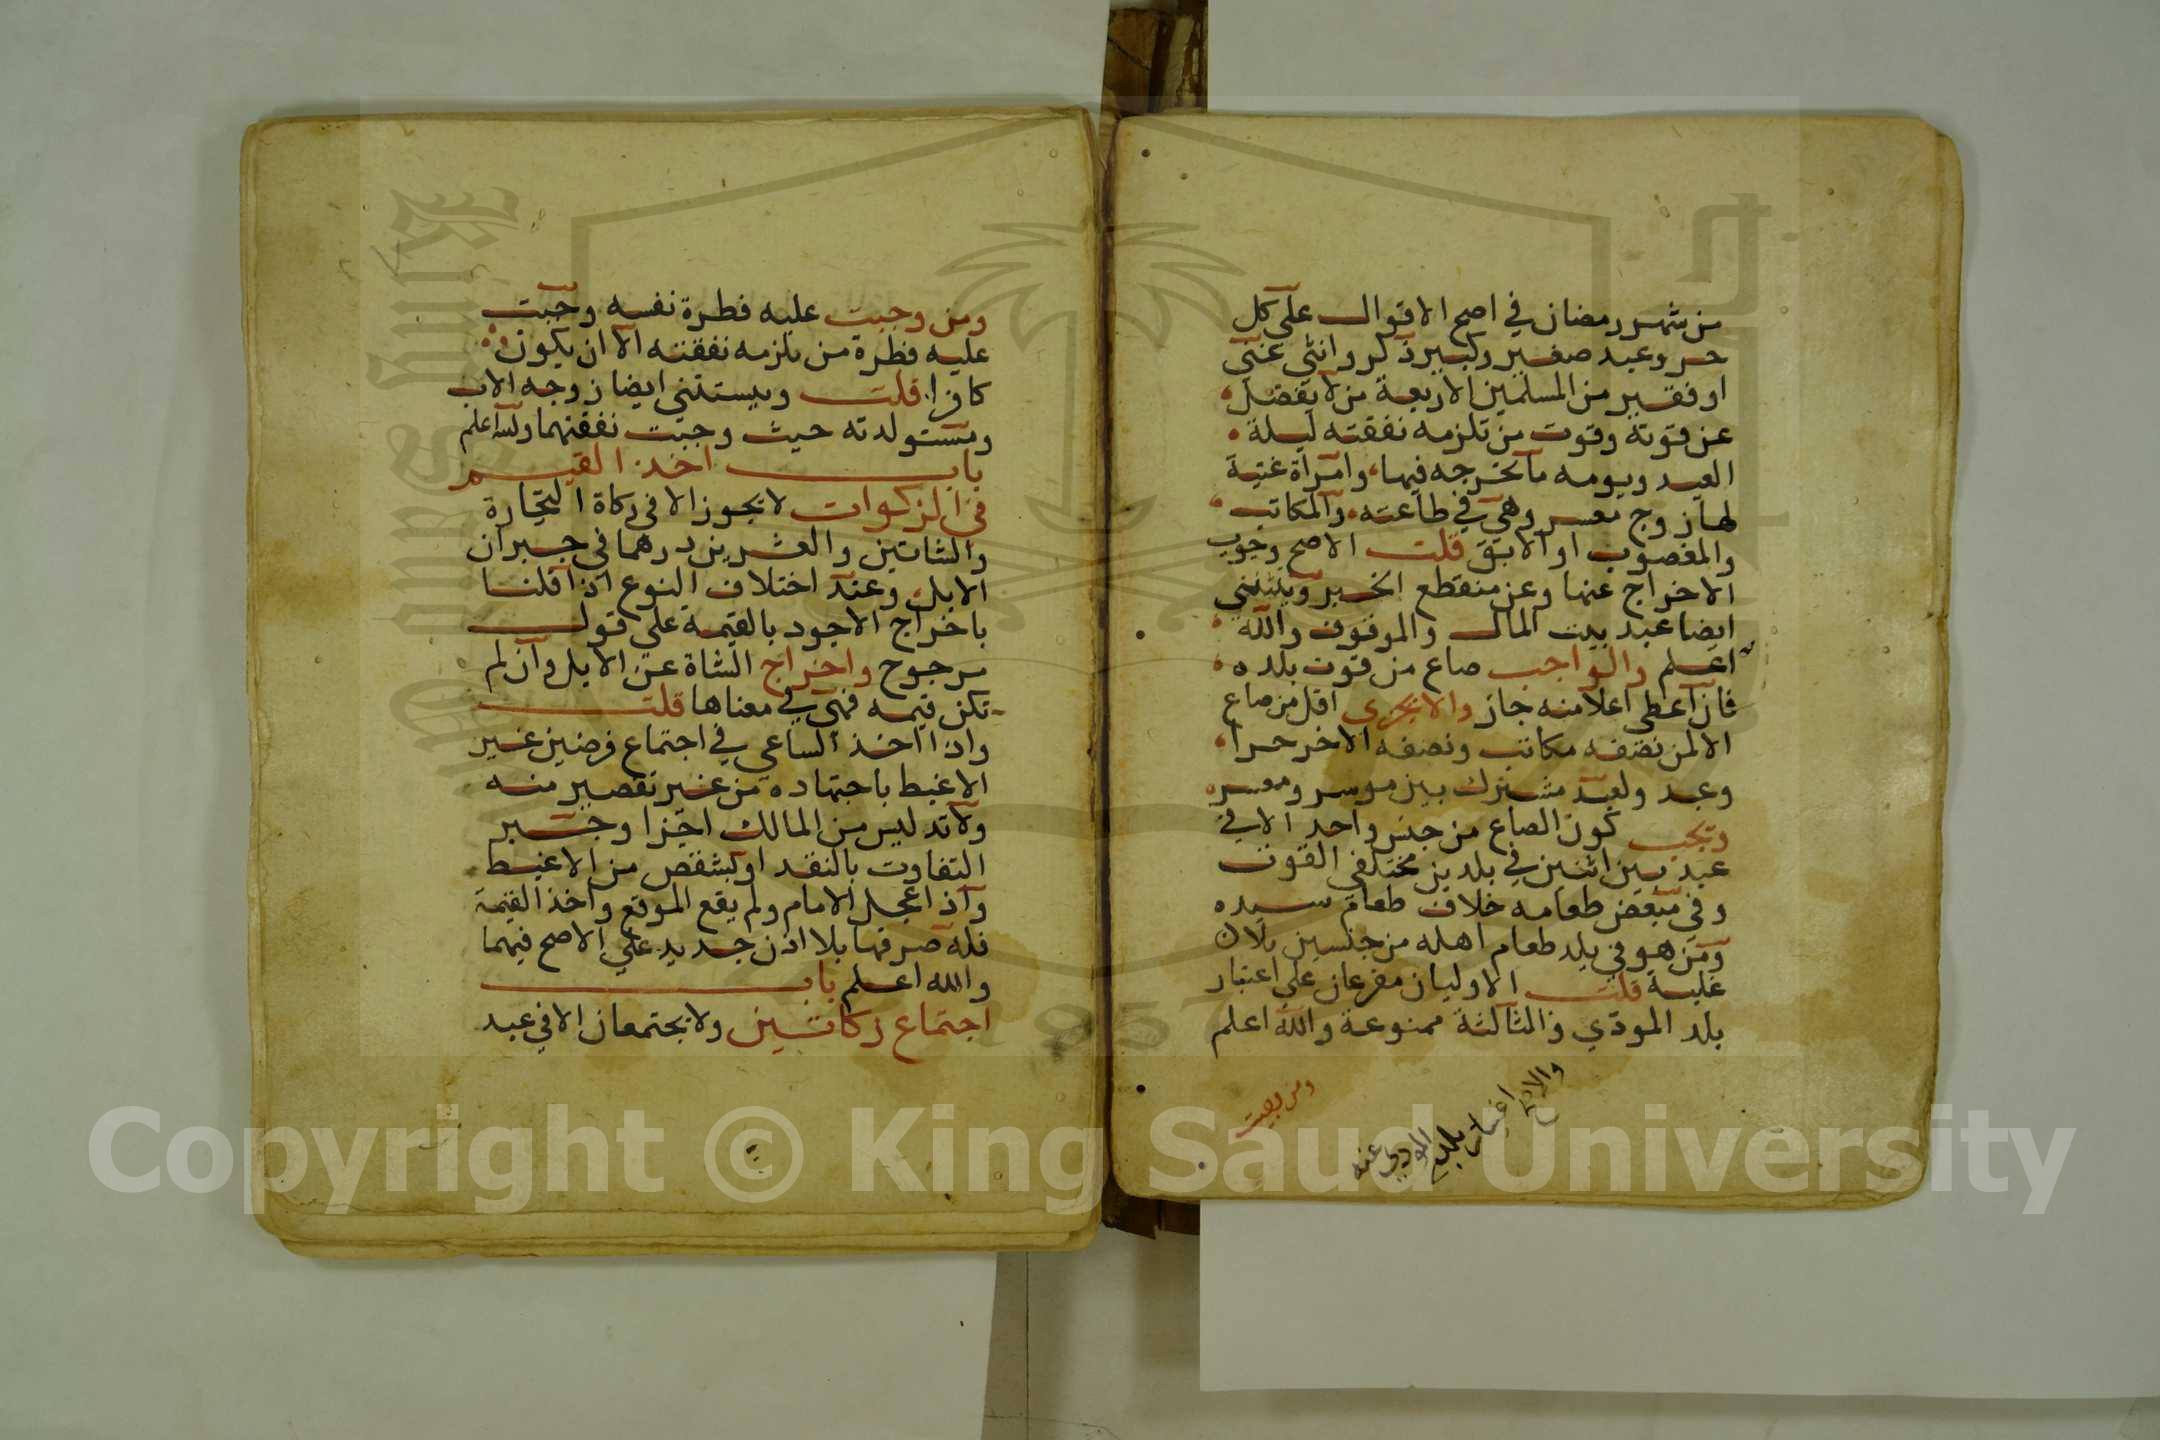 من شهر رمضان في اصح الاقوال على كل
حر وعبد صغير وكبير ذكر وانثى غني
او فقير من المسلمين الا اربعة من لا يفضل
عن قوته وقوت من تلزمه نفقته ليلة
العيد ويومه ما يخرجه فيها وامراة غنية
لها زوج معسر وهي في طاعته والمكاتب
والمغصوب او الابق قلت الاصح وجوب
الاخراج عنها وعن منقطع الخبر ويستثنى
ايضا عبد بيت المال والموقوف والله
اعلم والواجب صاع من قوت بلده
فان اعطى اعلا منه جاز ولا يجزى اقل من صاع
الا لمن نصفه مكاتب ونصفه الاخر حرا
وعبد ولعبد مشترك بين موسر ومعسر
ويجب كون الصاع من جنس واحد الا في
عبد بين اثنين في بلدين مختلفي القوت
وفي مبعض طعامه خلاف طعام سيده
ومن هو في بلد طعام اهله من جنسين
عليه قلت الاوليان مفرعان على اعتبار
بلد المودي والثالثة ممنوعة والله اعلم
بلد المودي عنه
ومن وجبت عليه فطرة نفسه وجبت
عليه فطرة من تلزمه نفقته الا ان يكون
كافرا قلت ويستثنى ايضا زوجه الاب
ومستولدته حيث وجبت نفقتهما والله اعلم
باب اخذ القيم
في الزكوات لا يجوز الا في زكاة التجارة
والشاتين والعشرين درهما في جبران
الابل وعند اختلاف النوع اذا قلنا
باخراج الاجود بالقيمة على قول
مرجوح واخراج الشاة عن الابل وان لم
تكن قيمه فهي في معناها قلت
واذا اخذ الساعي في اجتماع فرضين غير
الاغبط باجتهاده من غير تقصير منه
ولا تدليس من المالك اجزا وجبر
التفاوت بالنقد او بشقص من الاغبط
واذا عجل الامام ولم يقع الموقع واخذ القيمة
فله صرفها بلا اذن جديد على الاصح فيهما
والله اعلم باب
اجتماع زكاتين ولا يجتمعان الا في عبد
Copyright © King Saud University
1957